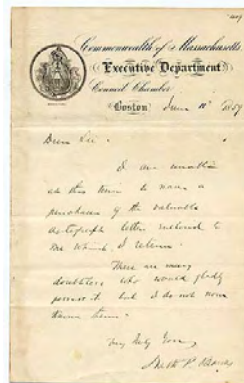 Commonwealth of Massachusetts.
Executive Department
Council Chamber
Boston June 11 1859
Dear Sir.
I am unable
at this time to name a
purchaser of the valuable
autograph letter enclosed to
me which I return.
There are many
doubtless who would gladly
possess it but I do not now
them.
Very truly Yours